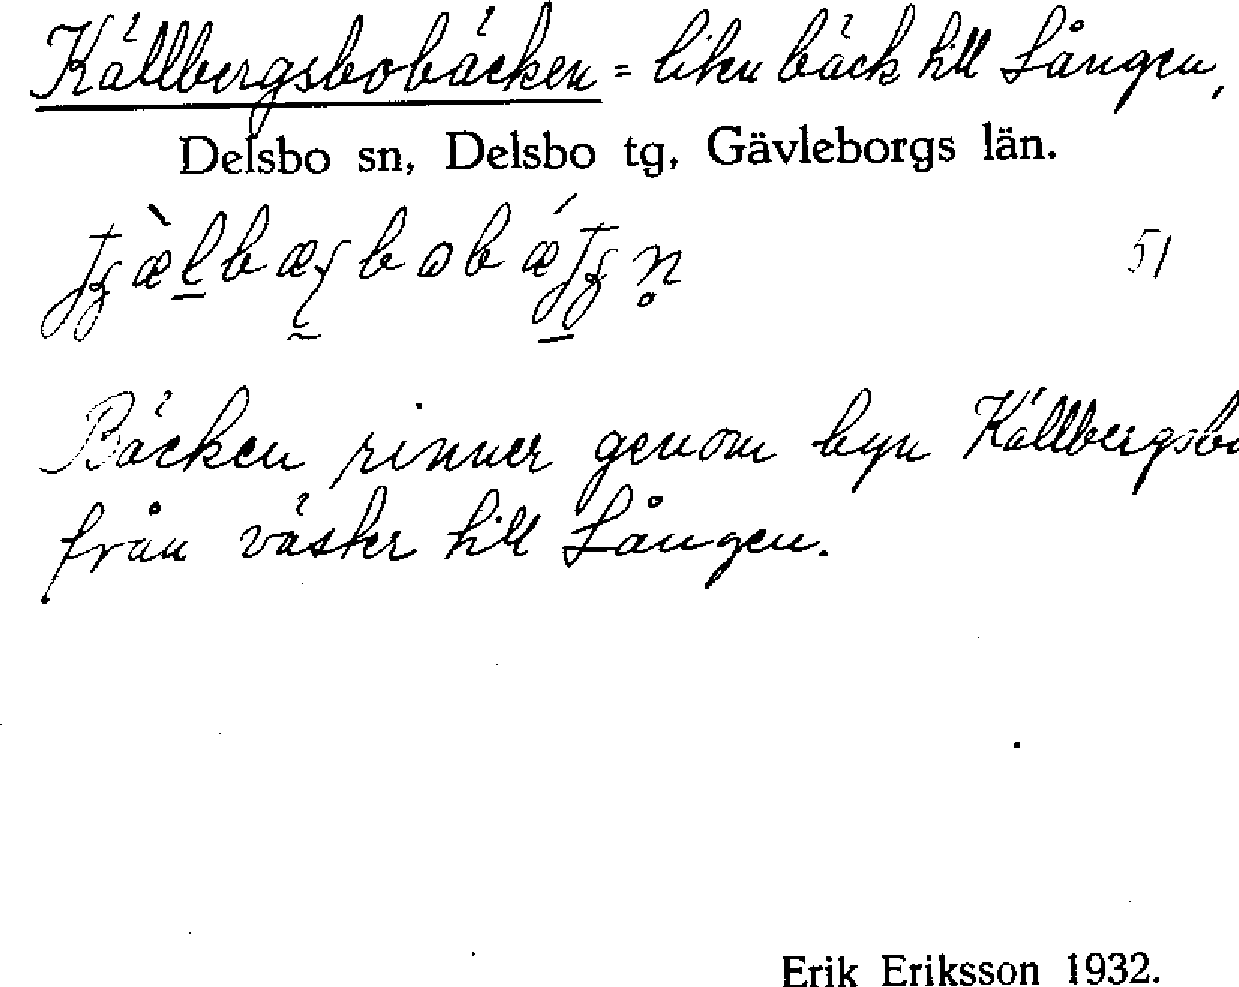 Källbergsbobäcken = liten bäck till Lången,
Delsbo sn, Delsbo tg, Gävleborgs län.
51
Bäcken rinner genom byn Källbergsbo
från väster till Lången.
Erik Eriksson 1932.